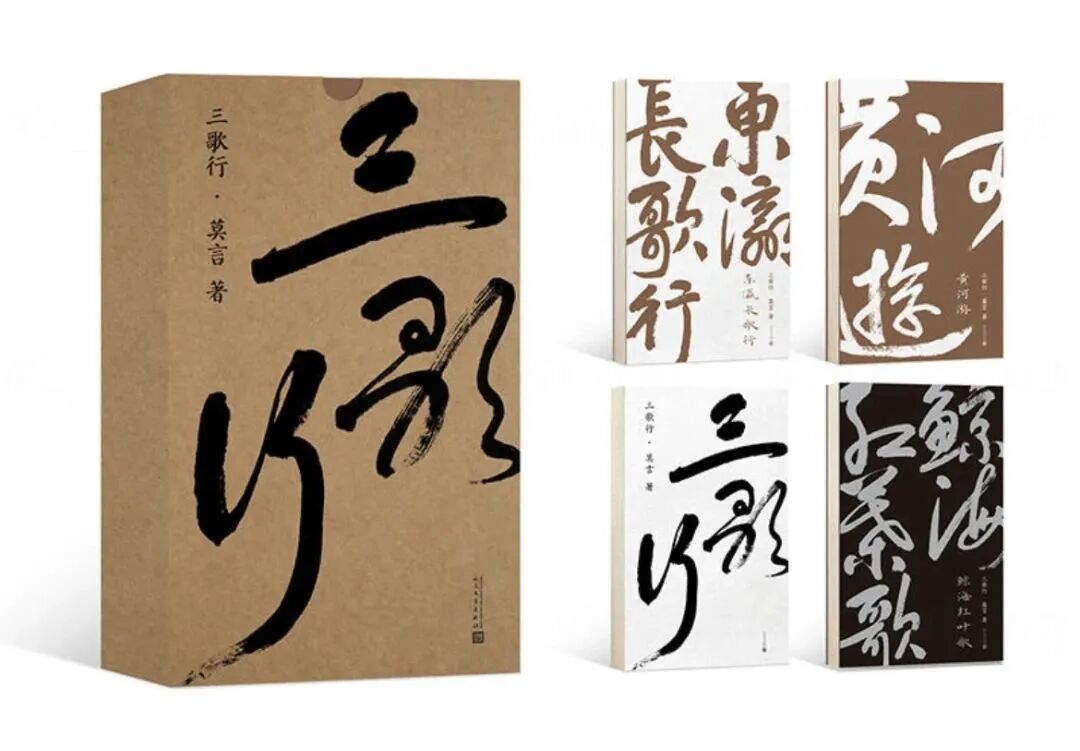 三歌行·莫言 著
三歌行
人民文学出版社
東瀛
長歌行
三歌行 莫言 著
东瀛长歌行
黄河
游
三歌行 莫言 著
黄河游
三歌行·莫言 著
三歌行
鲸海
红叶歌
三歌行 莫言 著
鲸海红叶歌